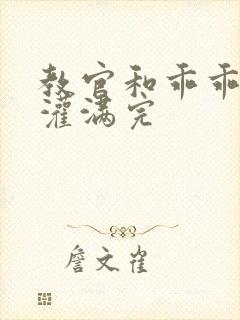 教官和乖乖
灌满完
詹文雀